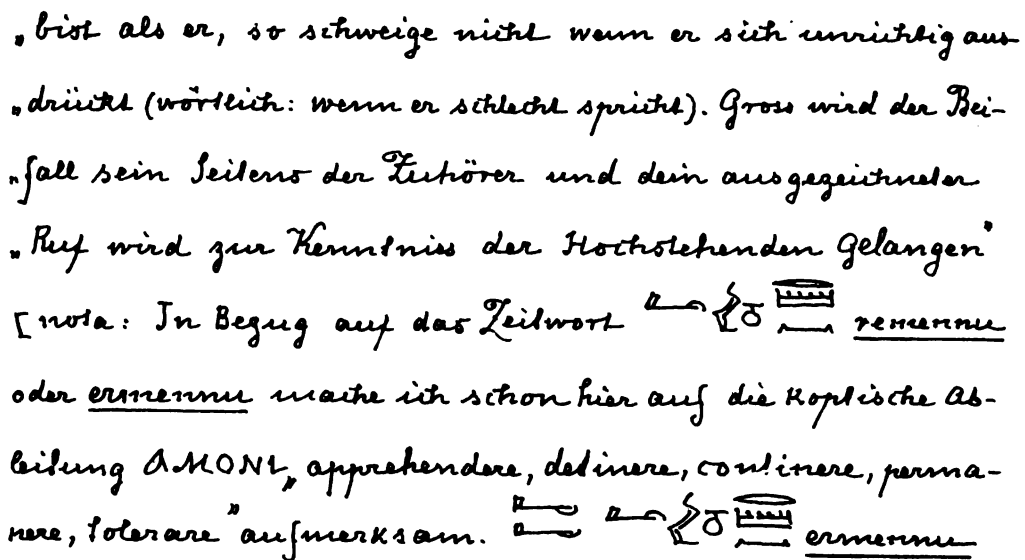 „bist als er, so schweige nicht wenn er sich unrichtig aus
„drückt (wörtlich: wenn er schlecht spricht). Gross wird der Bei-
„fall sein Seitens der Zuhörer und dein ausgezeichneter
„Ruf wird zur Kenntniss der Hochstehenden gelangen“
[nota: In Bezug auf das Zeitwort remennu
oder ermennu mache ich schon hier auf die koptische Ab-
leitung ⲀⲘⲞⲚⲒ „apprehendere, detinere, continere, perma-
nere, tolerare“ aufmerksam. ermennu